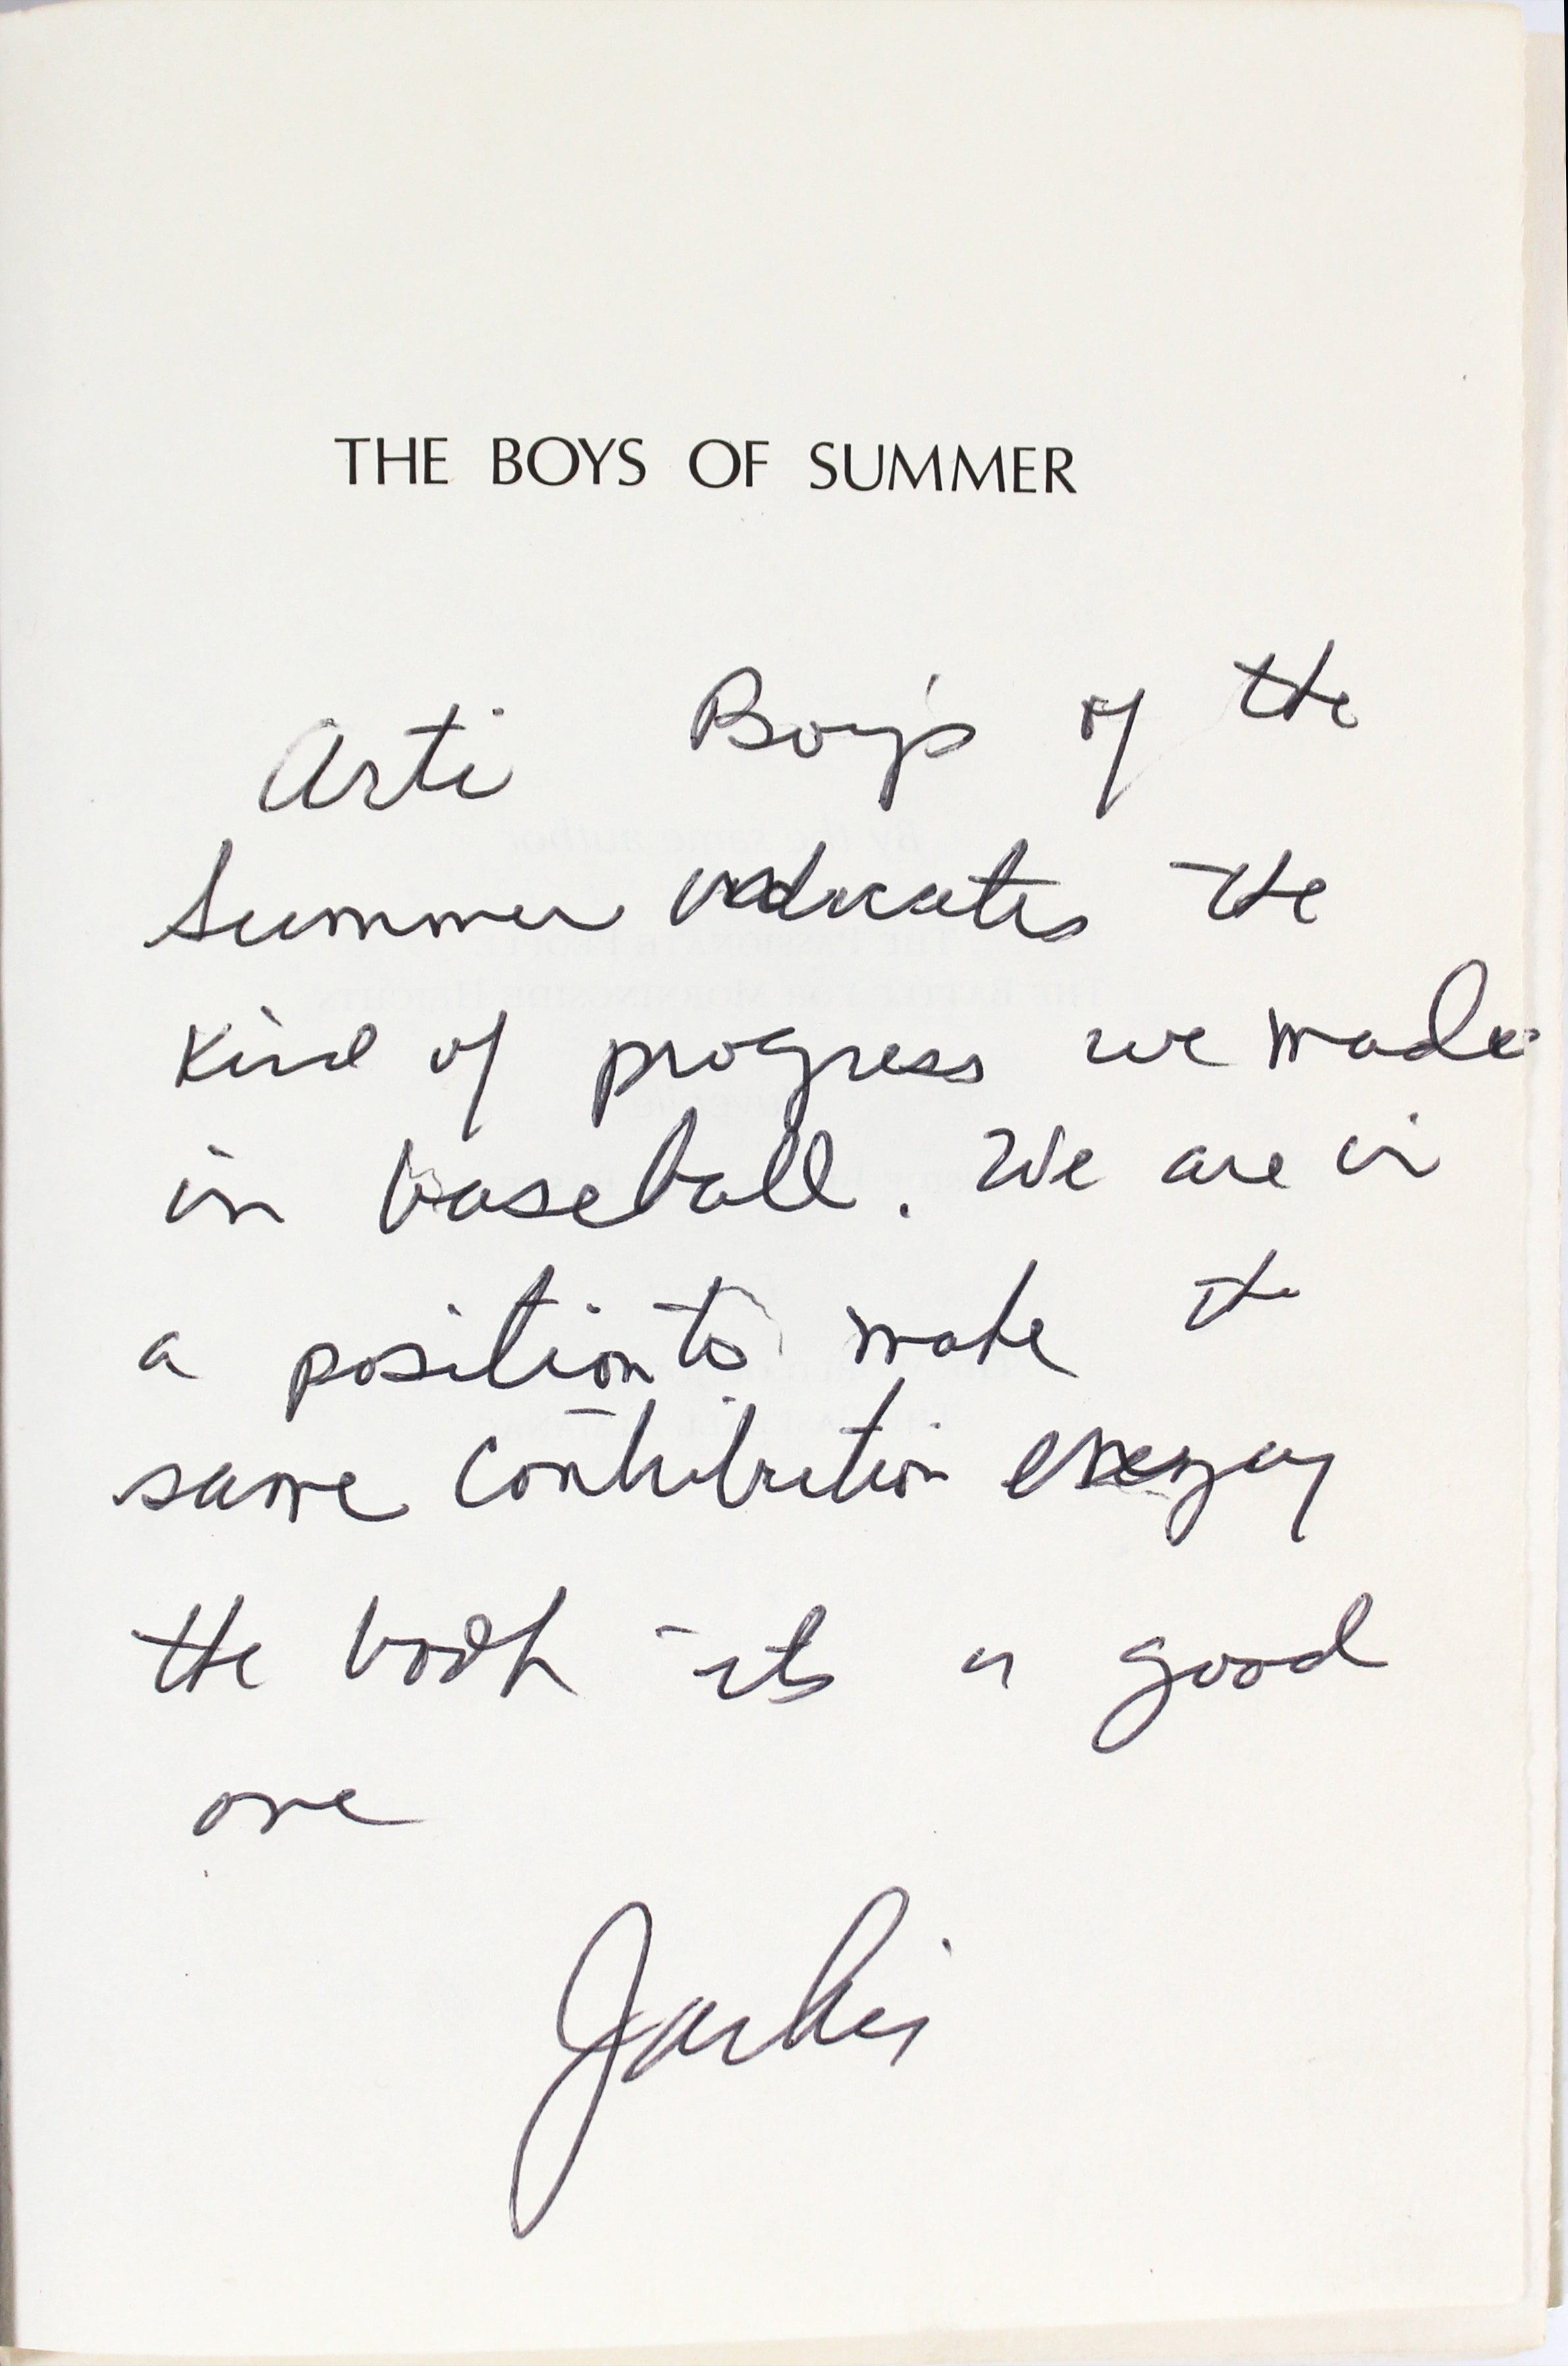 THE BOYS OF SUMMER
Arti Boy's of the
Summer indicates the
Kind of progress we made
in baseball. We are in
a position to make the
same contribution
the book its a good
one
Jackie